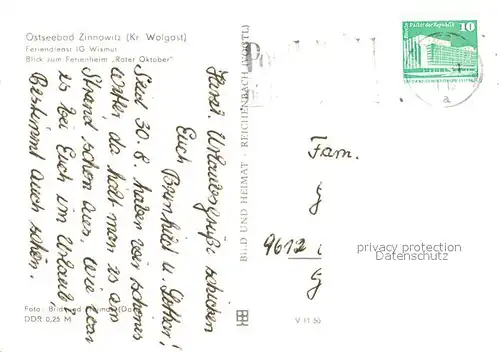 Ostseebad Zinnowitz (Kr. Wolgast)
Feriendienst IG Wismut
Blick zum Ferienheim „Roter Oktober"
Herzl. Urlaubsgrüße schicken
Euch Brunhild u. Lothar!
Seit 30.8. haben wir schönes
Wetter, da hält man es am
Strand schon aus. Wie war
es bei Euch im Urlaub?
Bestimmt auch schön.
BILD UND HEIMAT · REICHENBACH (VOGTL)
Palast der Republik
10
a
Fam.
G
9612
G
privacy protection
Sammleransichten.de
Foto: Bild und Heimat
DDR 0,25 M
V 11 50